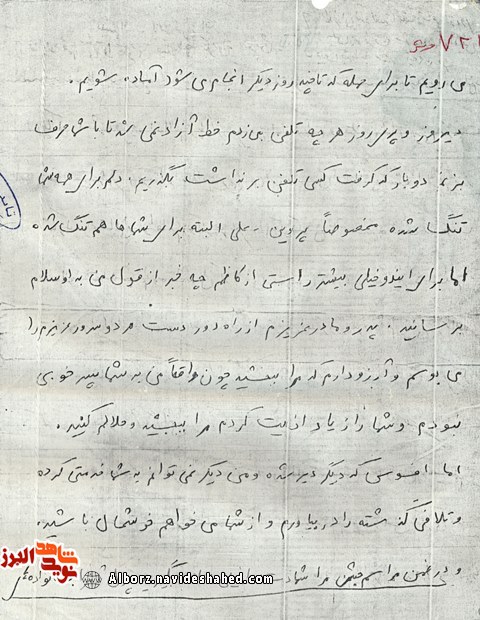 می رویم تا برای حمله که تا چند روز دیگر انجام می شود آماده شویم.
دیروز و پریروز هر چه تلفن می زدم خط آزاد نمی شد تا با شما حرف
بزنم دو بار که گرفت کسی تلفن بر نداشت بگذریم. دلم برای همه شما
تنگ شده مخصوصاً پروین و علی البته برای شماها هم تنگ شده
اما برای ایندو خیلی بیشتر راستی از کاظم چه خبر از قول من به او سلام
برسانید. پدر و مادر عزیزم از راه دور دست هر دو سرور عزیزم را
می بوسم و آرزو دارم که مرا ببخشید چون واقعاً من به شما پسر خوبی
نبودم و شما را زیاد اذیت کردم مرا ببخشید و حلالم کنید.
اما افسوس که دیگر دیر شده و من دیگر نمی توانم به شما خدمتی کرده
و تلافی گذشته را در بیاورم و از شما می خواهم خوشحال باشید
و در ضمن مراسم جشن مرا
شاهد
نوید
البرز
Alborz.navideshahed.com